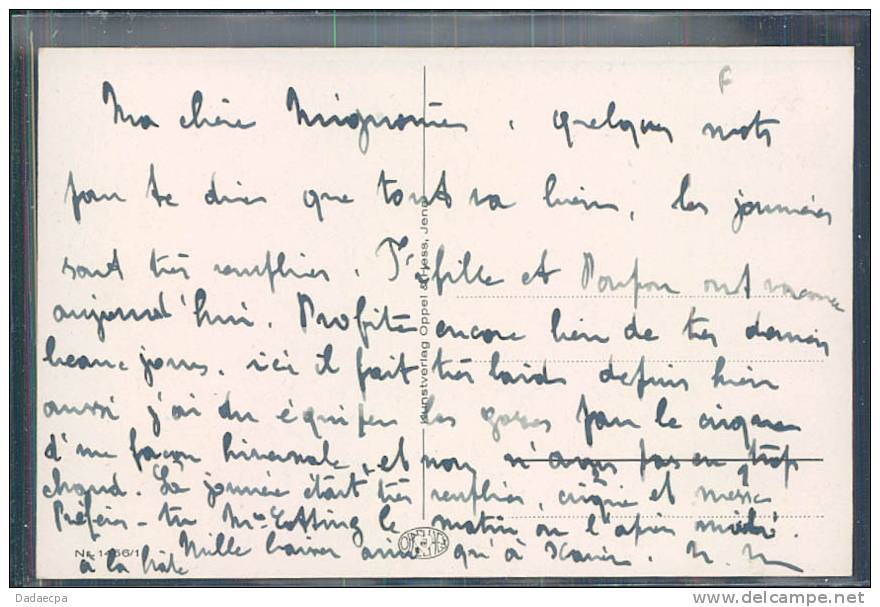 Ma chère Mignonne, quelques mots
pour te dire que tout va bien, les journées
sont très remplies. P. fille et Poupon ont vacance
aujourd'hui. Profite encore bien de tes derniers
beaux jours, ici il fait très laid depuis hier
aussi j'ai du équiper les gosses pour le cirque
d'une façon hivernale, et nous n'avons pas eu trop
chaud. La journée était très remplie, cirque et messe
Préfères-tu Mme le matin ou l'après midi.
Mille baisers ainsi qu'à Xavier.
à la hâte
Kunstverlag Oppel & Hess, Jena
Nr. 1456/1
Dadaecpa
delcampe.net